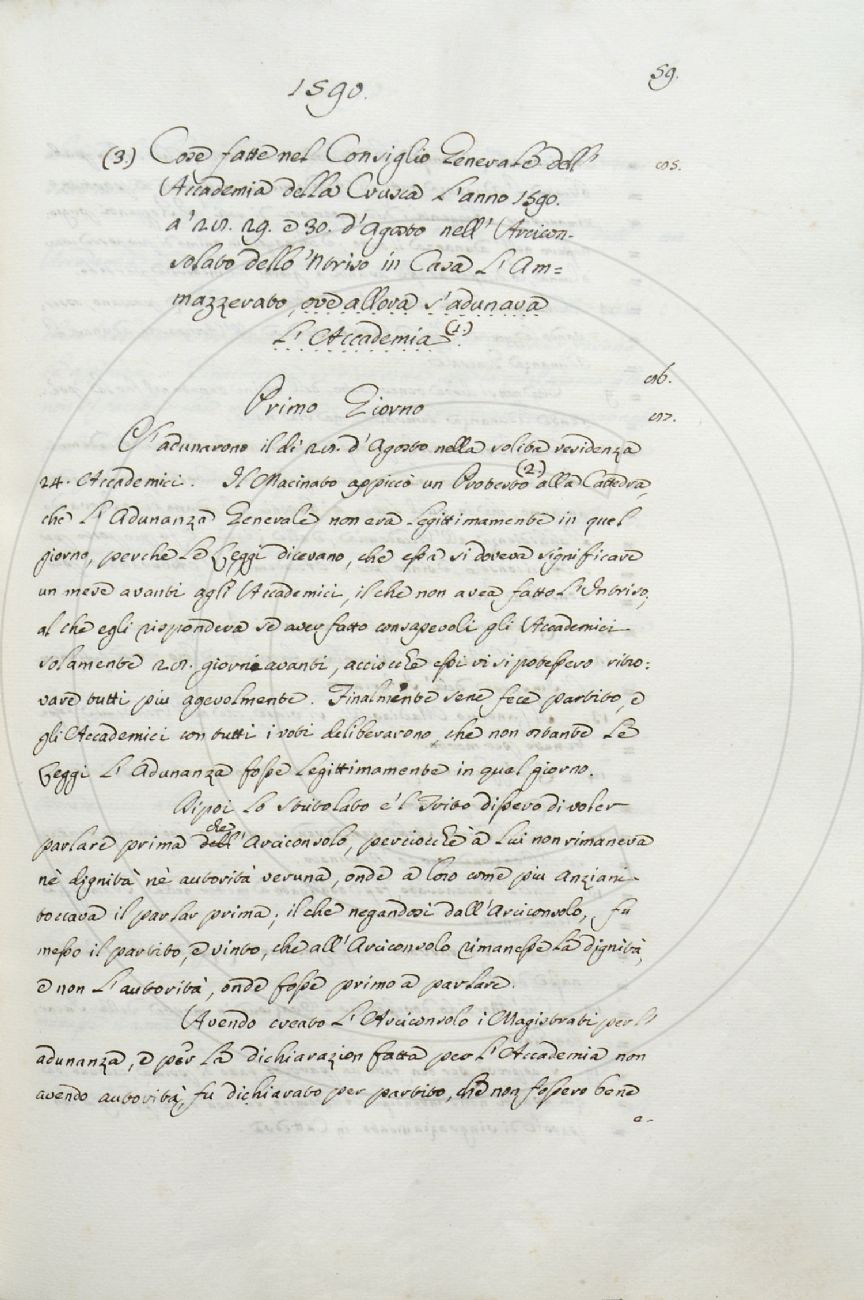 1590.
59.
(3.) Cose fatte nel Consiglio Generale dell'
Accademia della Crusca l'anno 1590.
a' 28. 29. e 30. d'Agosto nell'Arcicon-
solato dello 'Ntriso in Casa l'Am=
mazzerato, ove allora s'adunava
l'Accademia (1.)
Primo Giorno
S'adunarono il dì 28. d'Agosto nella solita residenza
24. Accademici. Il Macinato appiccò un Protesto (2.) alla Cattedra,
che l'Adunanza Generale non era legittimamente in quel
giorno, perchè le Leggi dicevano, che essa si doveva significare
un mese avanti agli Accademici, il che non avea fatto l'Intriso,
al che egli rispondeva se aver fatto consapevoli gli Accademici
solamente 28. giorni avanti, acciocchè essi vi si potessero ritro=
vare tutti più agevolmente. Finalmente sene fece partito, e
gli Accademici con tutti i voti deliberarono, che non ostante le
Leggi l'Adunanza fosse legittimamente in quel giorno.
Dipoi lo Stritolato e 'l Trito dissero di voler
parlare prima che dell'Arciconsolo, perciocchè a lui non rimaneva
nè dignità nè autorità veruna, onde a loro come più anziani
toccava il parlar prima; il che negandosi dall'Arciconsolo, fu
messo il partito, e vinto, che all'Arciconsolo rimanesse la dignità,
e non l'autorità, onde fosse primo a parlare.
Avendo creato l'Arciconsolo i Magistrati per l'
adunanza, e per la dichiarazion fatta per l'Accademia non
avendo autorità, fu dichiarato per partito, che non fossero bene
e-